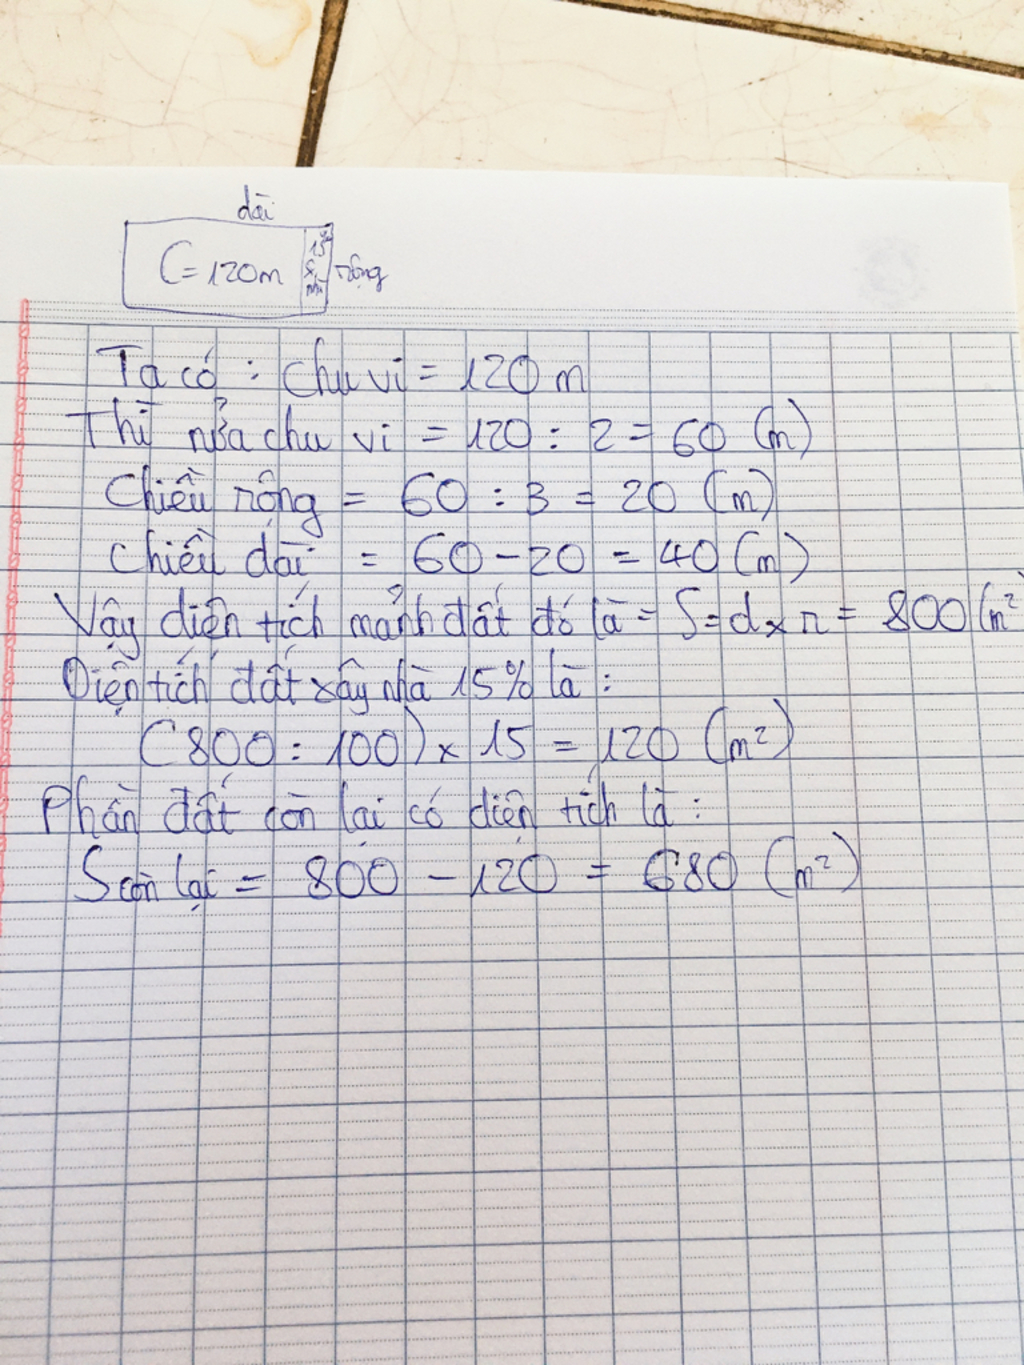 dài
C = 120m
15%
S
nhà
rộng
Ta có : Chu vi = 120 m
Thì nửa chu vi = 120 : 2 = 60 (m)
Chiều rộng = 60 : 3 = 20 (m)
Chiều dài = 60 - 20 = 40 (m)
Vậy diện tích mảnh đất đó là = S = d x r = 800 (m²
Diện tích đất xây nhà 15% là :
(800 : 100) x 15 = 120 (m²)
Phần đất còn lại có diện tích là :
S còn lại = 800 - 120 = 680 (m²)